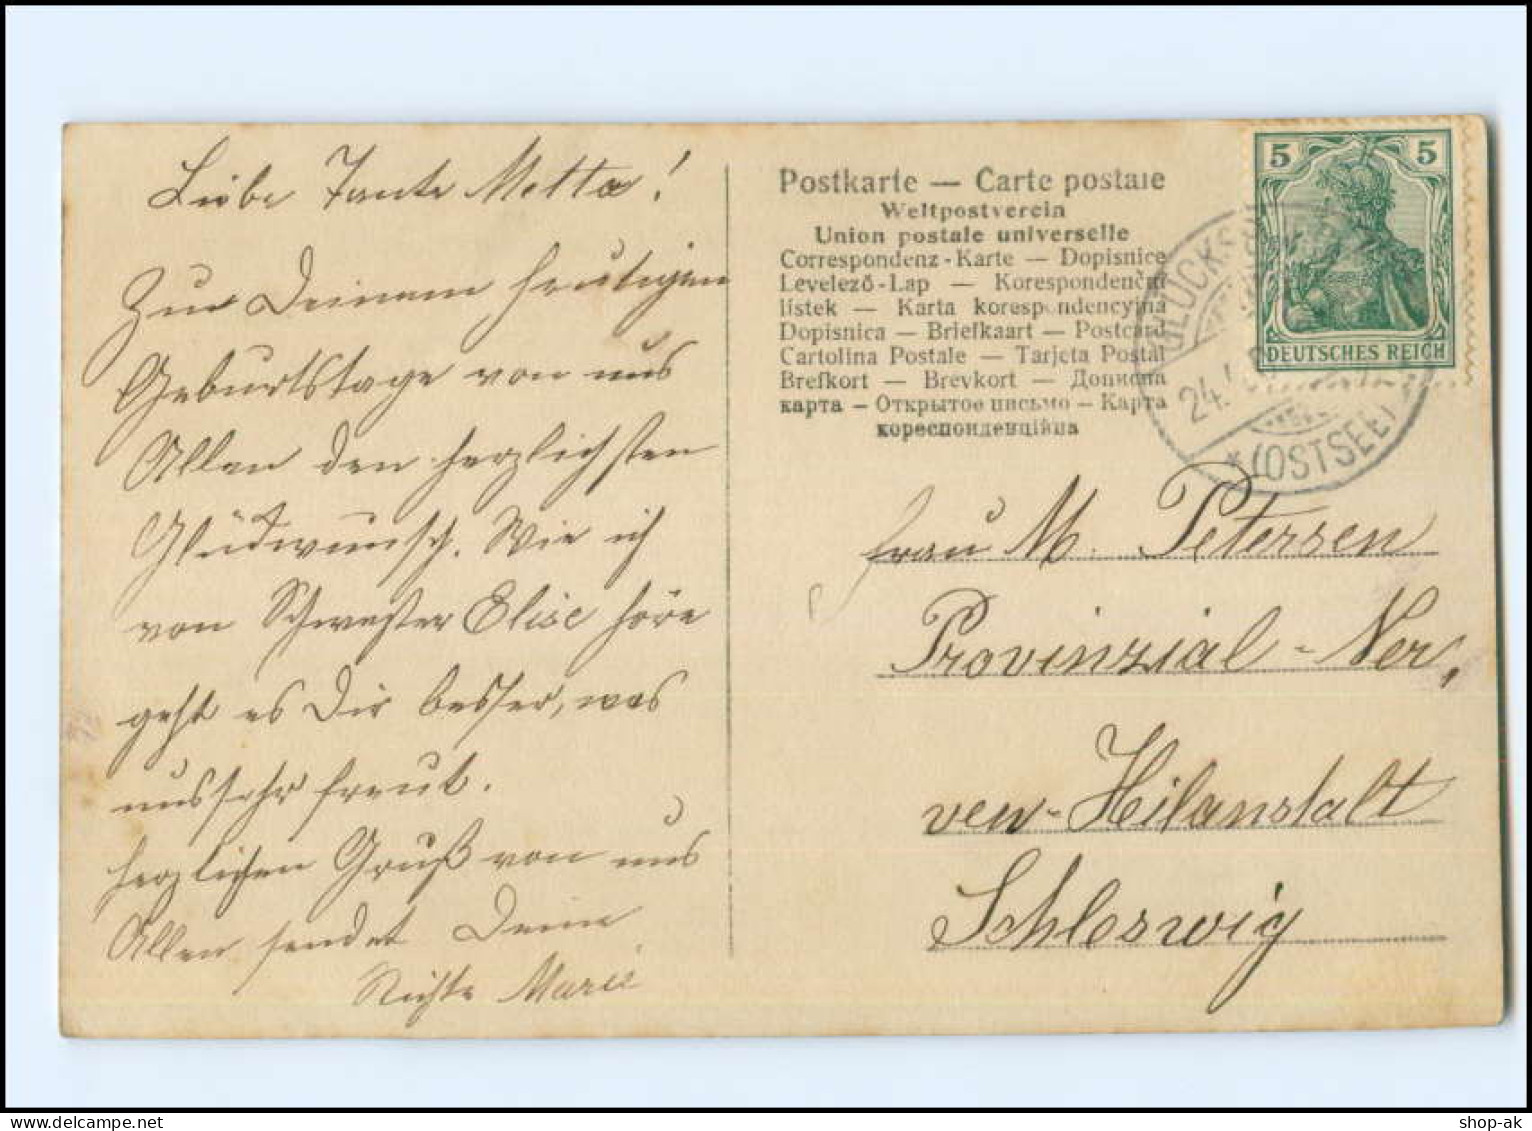 Liebe Tante Metta!
Zur Deinem heutigen
Geburtstage von uns
Allen den herzlichsten
Glückwunsch. Wie ich
von Schwester Elise höre
geht es Dir besser, was
uns sehr freut.
Herzlichen Gruß von uns
Allen sendet Deine
Nichte Marie
Postkarte — Carte postale
Weltpostverein
Union postale universelle
Correspondenz-Karte — Dopisnice
Levelező-Lap — Korespondenční
lístek — Karta korespondencyjna
Dopisnica — Briefkaart — Postcard
Cartolina Postale — Tarjeta Postal
Brefkort — Brevkort — Дописна
карта — Открытое письмо — Карта
кореспонденційна
5 5
DEUTSCHES REICH
24.
* (OSTSEE)
Frau M. Petersen
Provinzial-Ner,
ven-Heilanstalt
Schleswig
shop-ak